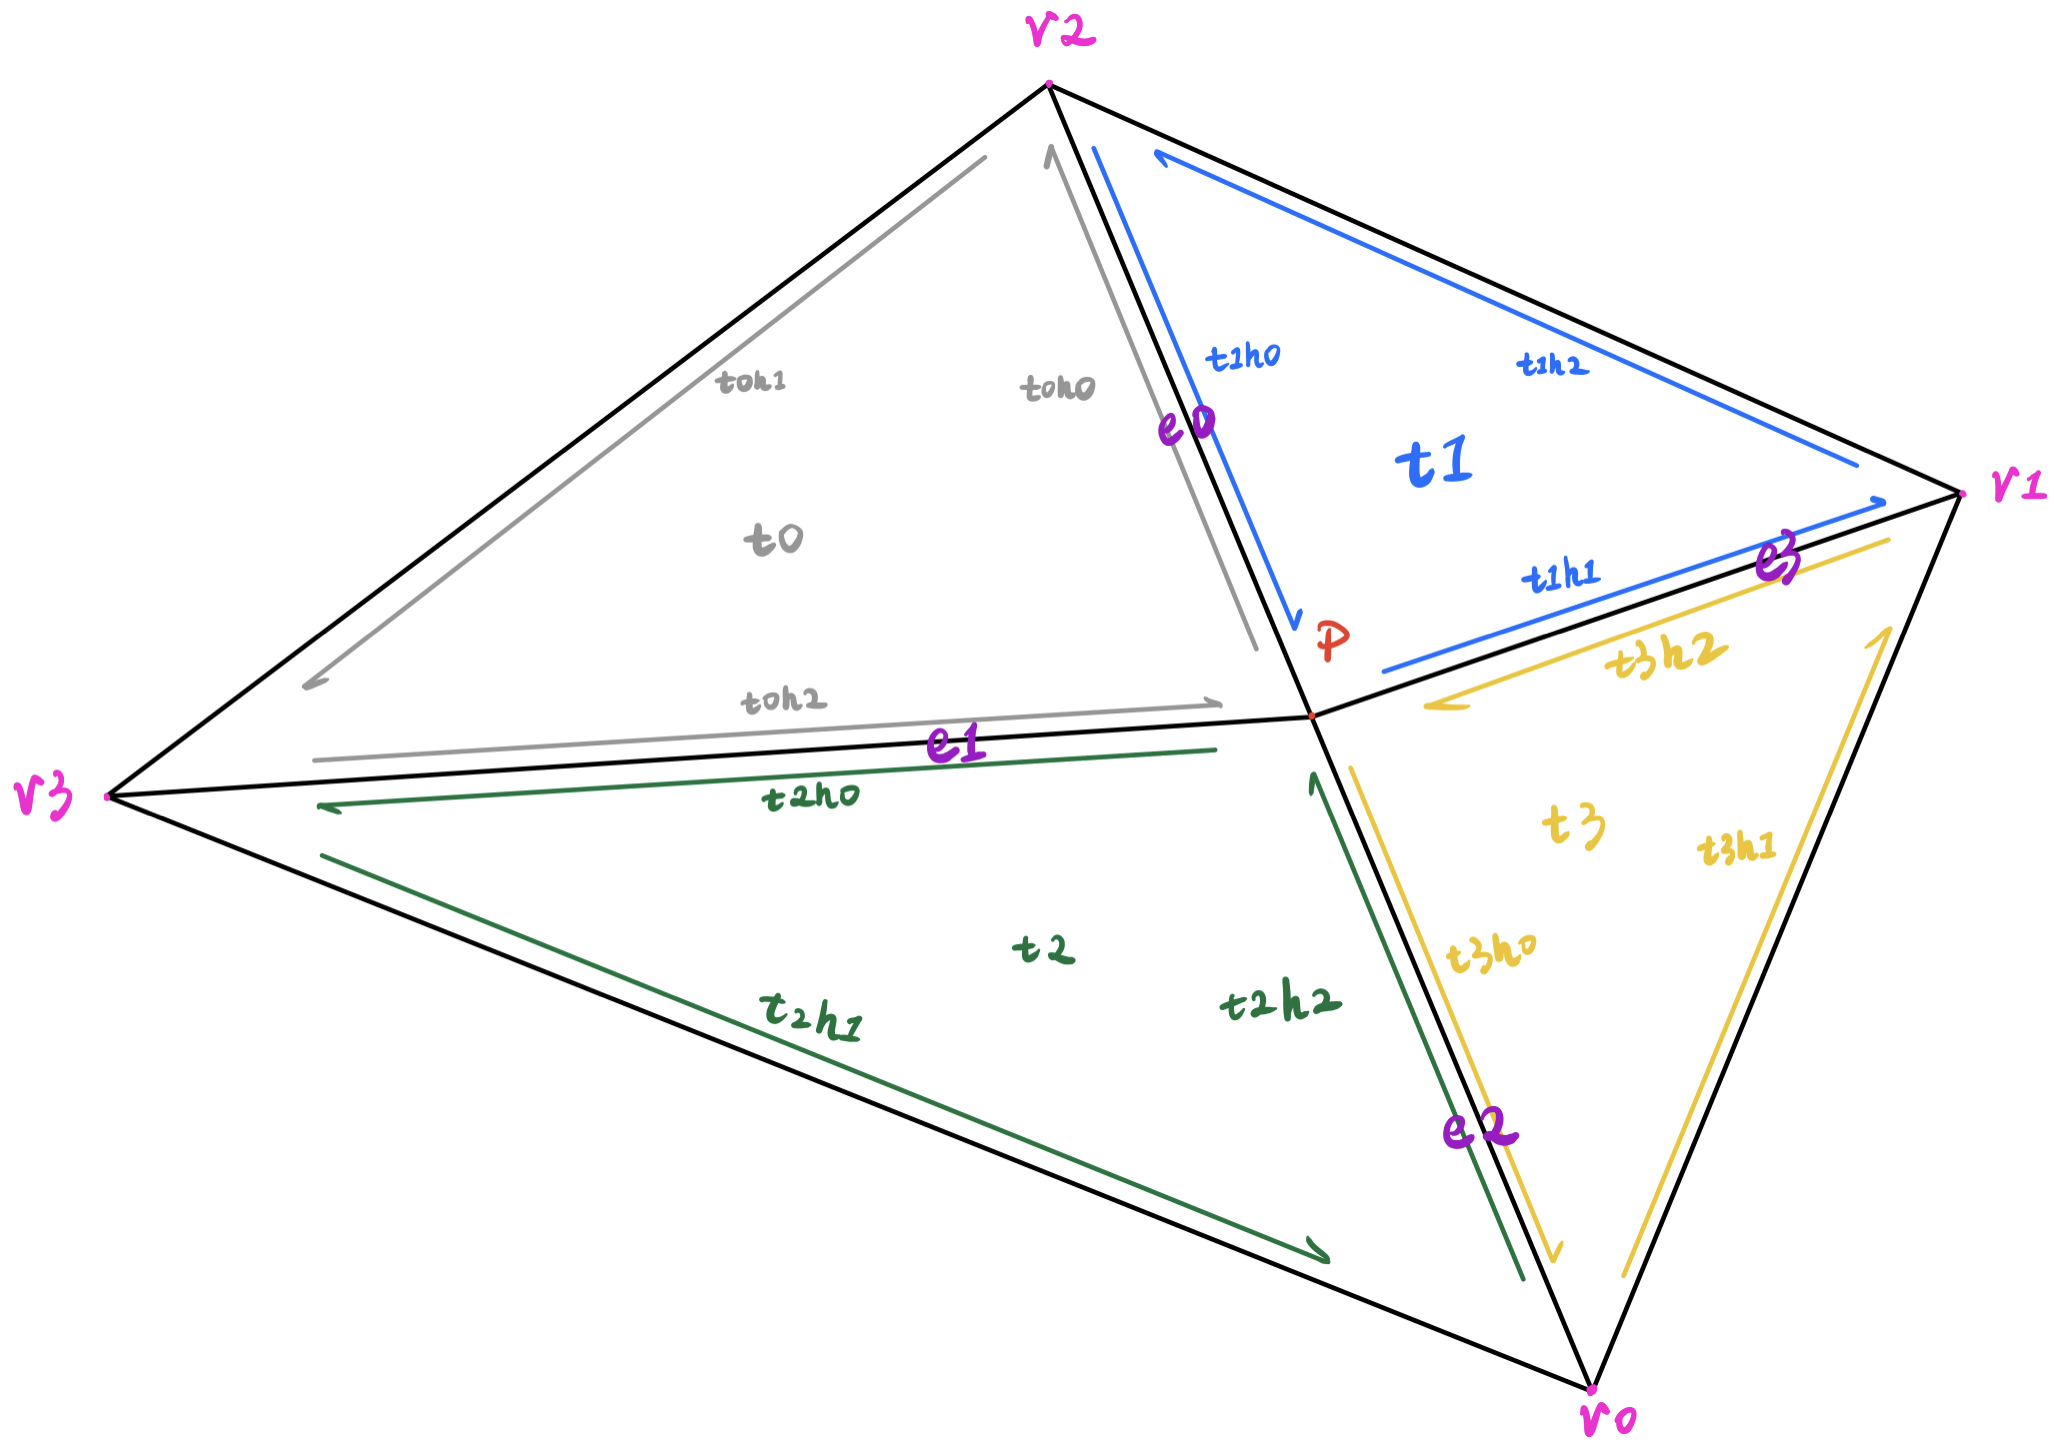 v2
t0h1
t0h0
t1h0
t1h2
e0
t1
v1
t0
e3
t1h1
p
t3h2
t0h2
e1
v3
t2h0
t3
t3h1
t2
t3h0
t2h1
t2h2
e2
v0